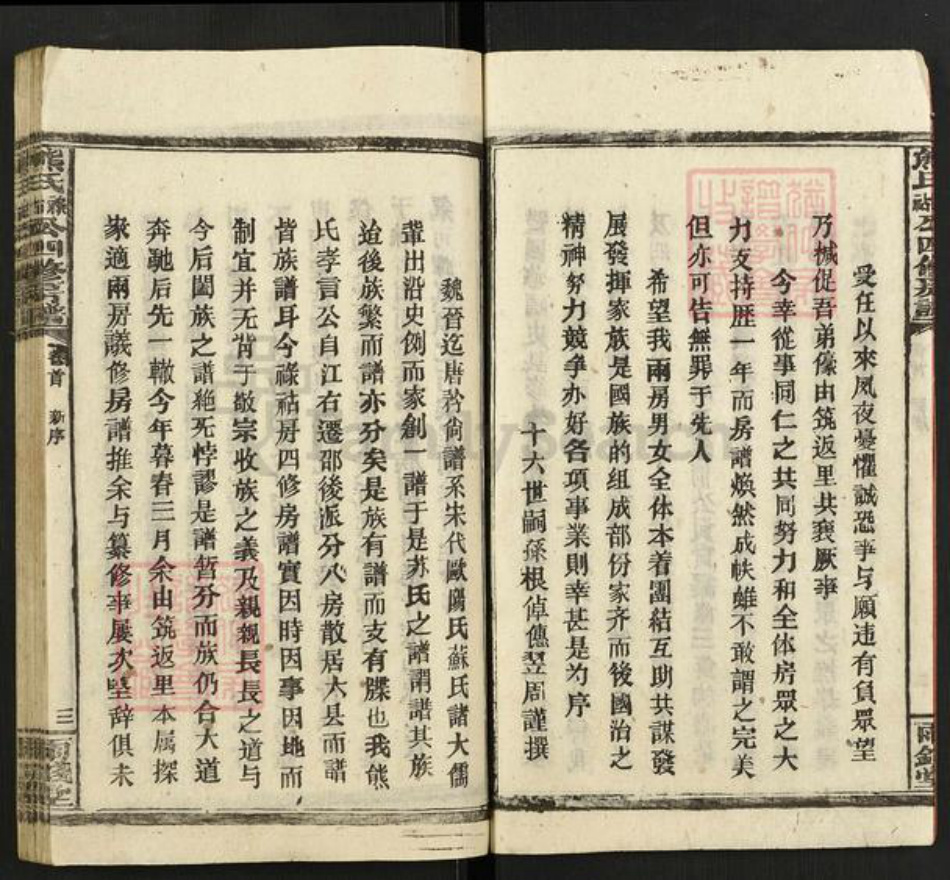 受任以來夙夜憂懼誠恐事与願违有負眾望
乃槭促吾弟傢由筑返里共襄厥事
今幸從事同仁之共同努力和全体房眾之大
力支持歴一年而房譜煥然成帙雖不敢謂之完美
但亦可告無罪于先人
希望我兩房男女全体本着團結互助共謀發
展發揮家族是國族的组成部份家齐而後國治之
精神努力競争办好各項事業則幸甚是为序
十六世嗣孫根倬儓翌周謹撰
魏晉迄唐矜尙譜系宋代歐陽氏蘇氏諸大儒
輩出沿史例而家創一譜于是苏氏之譜謂譜其族
迨後族繁而譜亦分矣是族有譜而支有牒也我熊
氏孝言公自江右遷邵後派分八房散居大县而譜
皆族譜耳今祿祜房四修房譜實因時因事因地而
制宜并无背于敬宗收族之義及親親長長之道与
今后闔族之譜絶旡悖謬是譜暂分而族仍合大道
奔馳后先一轍今年暮春三月余由筑返里本属探
亲適兩房議修房譜推余与纂修事屡次坚辞俱未
熊氏
公四修房譜
首
新序
三